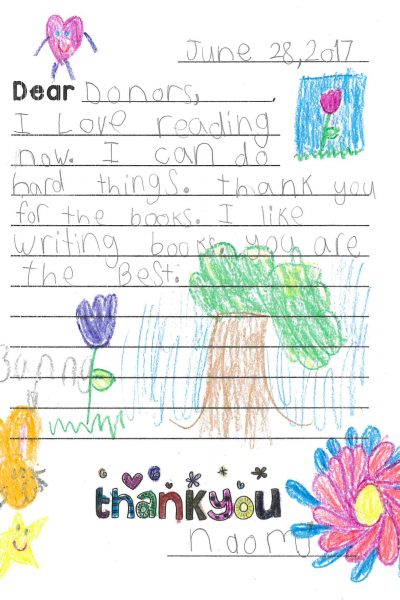 June 28, 2017
Dear Donors,
I Love reading
now. I can do
hard things. thank you
for the books. I like
writing books you are
the Best.
Bunny
thank you
naomi